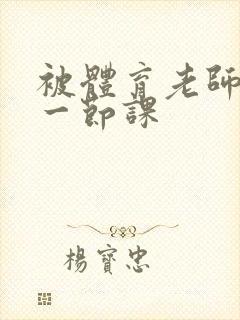 被體育老師
一節課
楊寶忠